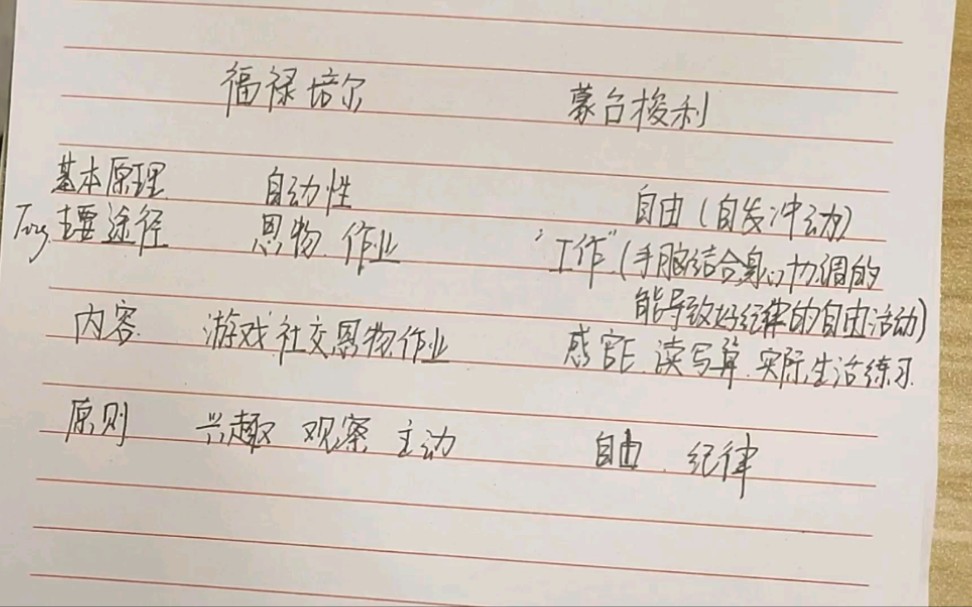 福禄培尔 蒙台梭利
基本原理 自动性 自由(自发冲动)
主要途径 恩物 作业 "工作"(手脑结合身心协调的
能导致好纪律的自由活动)
内容 游戏 社交 恩物 作业 感官 读写算 实际生活练习
原则 兴趣 观察 主动 自由 纪律